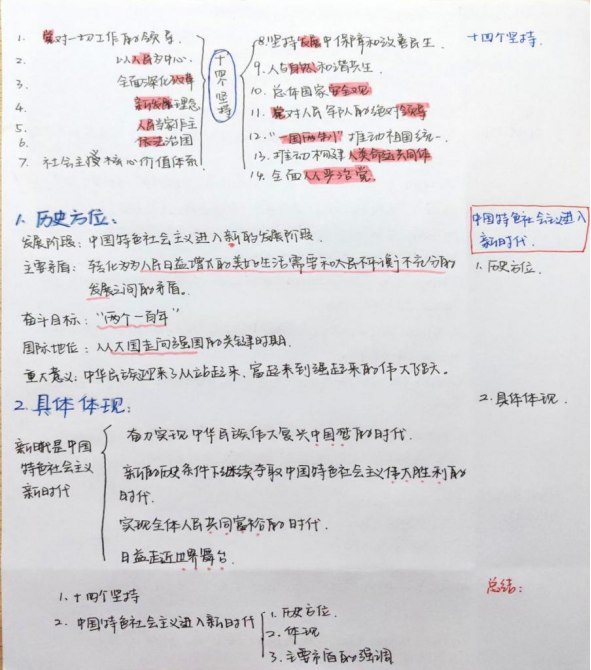 1. 党对一切工作的领导.
2. 以人民为中心.
3. 全面深化改革
4. 新发展理念
5. 人民当家作主
6. 依法治国
7. 社会主义核心价值体系
十四个坚持
8.坚持发展中保障和改善民生
9.人与自然和谐共生.
10. 总体国家安全观
11. 党对人民军队的绝对领导
12. "一国两制"推动祖国统一.
13. 推动构建人类命运共同体
14. 全面从严治党.
十四个坚持.
1. 历史方位:
发展阶段: 中国特色社会主义进入新的发展阶段.
主要矛盾: 转化为人民日益增长的美好生活需要和不平衡不充分的
发展之间的矛盾.
奋斗目标: "两个一百年"
国际地位: 从大国走向强国的关键时期.
重大意义: 中华民族迎来了从站起来、富起来到强起来的伟大飞跃.
中国特色社会主义进入
新时代.
1.历史方位.
2. 具体体现:
新时代是中国
特色社会主义
新时代
奋力实现中华民族伟大复兴中国梦的时代.
新的历史条件下继续夺取中国特色社会主义伟大胜利的
时代.
实现全体人民共同富裕的时代.
日益走近世界舞台.
2.具体体现.
1.十四个坚持
2. 中国特色社会主义进入新时代
1. 历史方位.
2. 体现
3. 主要矛盾的强调
总结: